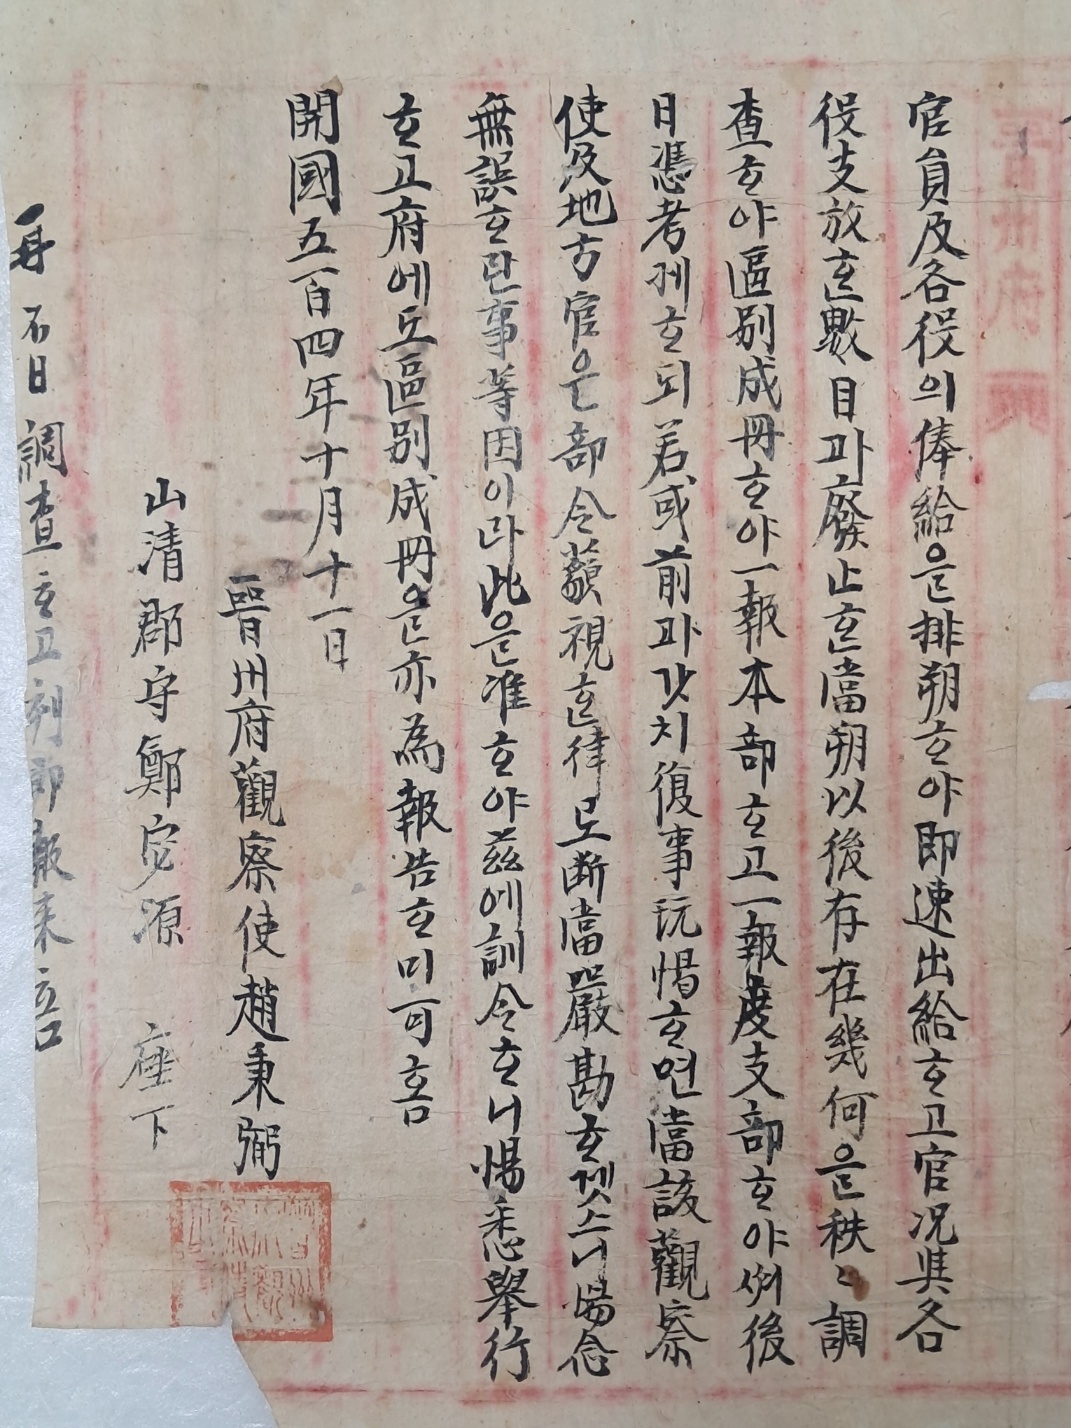 官員及各役의俸給은排朔ᄒᆞ야即速出給ᄒᆞ고官况與各
役支放ᄒᆞᆫ數日과廢止ᄒᆞᆫ當朔以後存在幾何을秩〻調
查ᄒᆞ야區別成冊ᄒᆞ야一報本部ᄒᆞ고一報度支部ᄒᆞ야俾後
日憑考케ᄒᆞ되若或前과갓치復事玩愒ᄒᆞ면當該觀察
使及地方官은部令藐視ᄒᆞᆫ律로断當嚴勘ᄒᆞ겟스니惕念
無誤ᄒᆞ란事等因이라此을准ᄒᆞ야玆에訓令ᄒᆞ니惕悉擧行
ᄒᆞ고府에도區別成冊을亦為報告ᄒᆞ미可홈
開國五百四年十月十一日
晉州府觀察使趙秉弼
山淸郡守鄭宓源 座下
再 不日調查ᄒᆞ고刻即報来홈